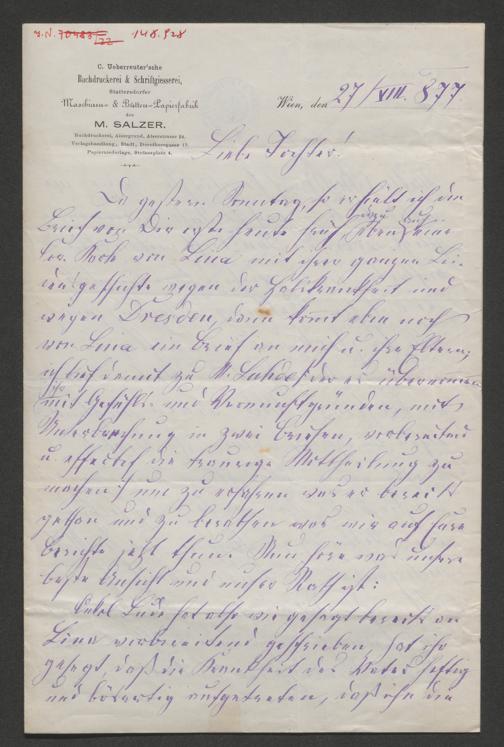 I.N. 70483/22 148.928
C. Ueberreuter'sche
Buchdruckerei & Schriftgiesserei,
Stattersdorfer
Maschinen- & Bütten-Papierfabrik
des
M. SALZER.
Buchdruckerei, Alsergrund, Alserstrasse 24.
Verlagshandlung, Stadt, Dorotheergasse 17.
Papierniederlage, Steinsplatz 4.
Wien, den 27/VIII. 877
Liebe Tochter!
Da gestern Sonntag, so erhielt ich den
Brief von Dir erst heute früh, eben eine
Cor. Kart von Lina mit ihrer ganzen Lei-
densgeschichte wegen der Halskrankheit und
wegen Dresden, dann kommt eben noch
von Lina ein Brief an mich u. ihre Eltern;
ich lief damit zu (der es übernommen
mit Gefühls- und Vernunftgründen, mit
Unterbrechung in zwei Briefen, vorbereitend
u. effectif die traurige Mittheilung zu
machen) um zu erfahren was er bereits
gethan und zu berathen was wir auf Eure
Berichte jetzt thun. Nun höre was unsere
beste Ansicht und unser Rath ist:
Onkel hat also wie gesagt bereits an
Lina vorbereitend geschrieben, hat ihr
gesagt, daß die Krankheit des Vaters heftig
und bösartig aufgetreten, daß ihn die